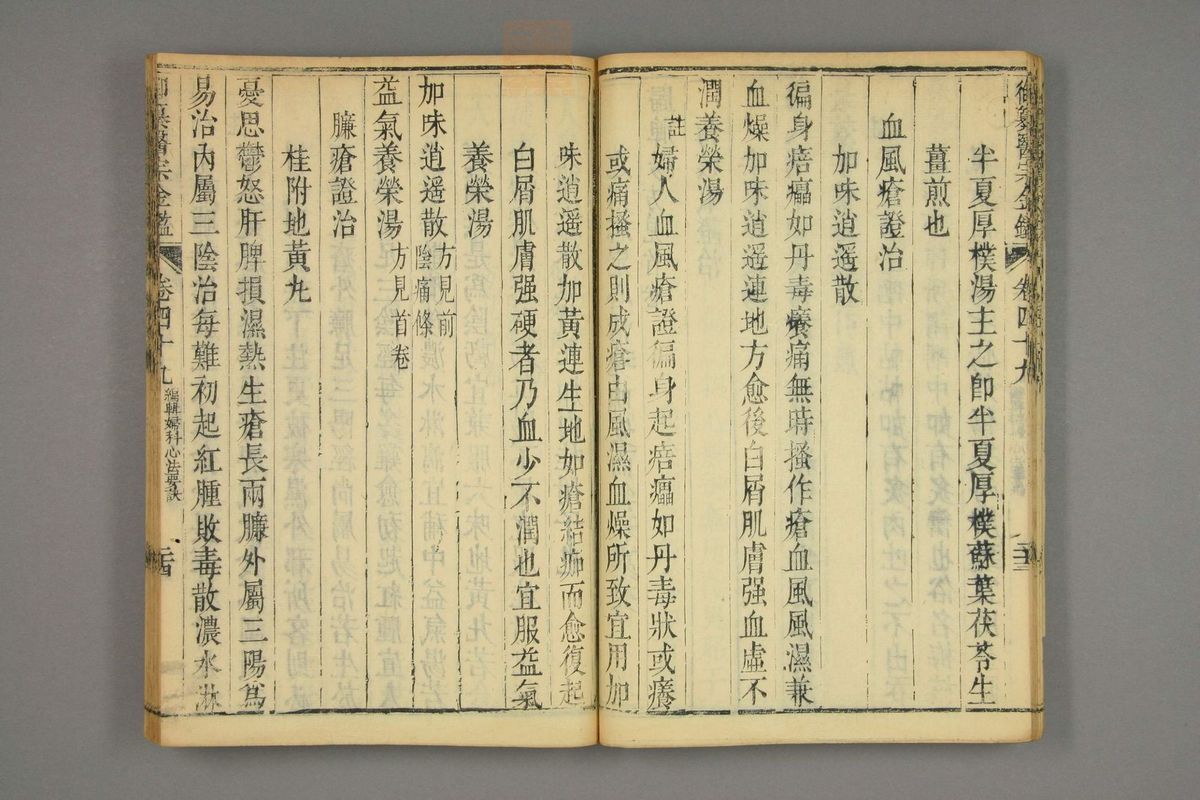 御纂醫宗金鑑 卷四十九 二十三
半夏厚樸湯主之卽半夏厚樸蘇葉茯苓生
薑煎也
血風瘡證治
加味逍遥散
徧身㾦㿔如丹毒癢痛無時搔作瘡血風風濕兼
血燥加味逍遥連地方愈後白屑肌膚强血虛不
潤養榮湯
註婦人血風瘡證徧身起㾦㿔如丹毒狀或癢
或痛搔之則成瘡由風濕血燥所致宜用加
味逍遥散加黃連生地如瘡結痂而愈復起
白屑肌膚强硬者乃血少不潤也宜服益氣
養榮湯
加味逍遥散方見前陰痛條
益氣養榮湯方見首卷
臁瘡證治
桂附地黃丸
憂思鬱怒肝脾損濕熱生瘡長兩臁外屬三陽爲
易治內屬三陰治每難初起紅腫敗毒散濃水淋
御纂醫宗金鑑 卷四十九 編輯婦科心法要訣 二十四